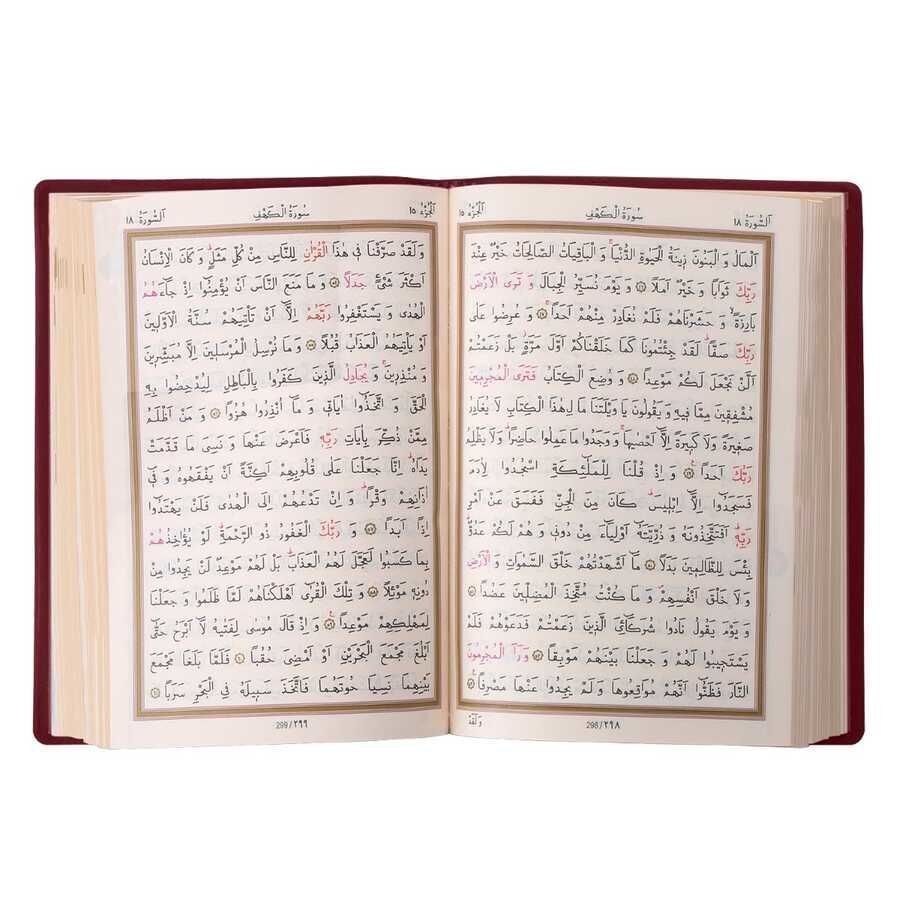 اَلسُّورَةُ ١٨
سُورَةُ الْكَهْفِ
اَلْجُزْءُ ١٥
اَلْمَالُ وَ الْبَنُونَ زٖينَةُ الْحَيٰوةِ الدُّنْيَاۚ وَ الْبَاقِيَاتُ الصَّالِحَاتُ خَيْرٌ عِنْدَ
رَبِّكَ ثَوَابًا وَ خَيْرٌ اَمَلًا ۝٤٦ وَ يَوْمَ نُسَيِّرُ الْجِبَالَ وَ تَرَى الْاَرْضَ
بَارِزَةًۙ وَ حَشَرْنَاهُمْ فَلَمْ نُغَادِرْ مِنْهُمْ اَحَدًاۚ ۝٤٧ وَ عُرِضُوا عَلٰى
رَبِّكَ صَفًّاؕ لَقَدْ جِئْتُمُونَا كَمَا خَلَقْنَاكُمْ اَوَّلَ مَرَّةٍؗ بَلْ زَعَمْتُمْ
اَلَّنْ نَجْعَلَ لَكُمْ مَوْعِدًا ۝٤٨ وَ وُضِعَ الْكِتَابُ فَتَرَى الْمُجْرِمٖينَ
مُشْفِقٖينَ مِمَّا فٖيهِ وَ يَقُولُونَ يَا وَيْلَتَنَا مَا لِهٰذَا الْكِتَابِ لَا يُغَادِرُ
صَغٖيرَةً وَ لَا كَبٖيرَةً اِلَّٓا اَحْصٰيهَاۚ وَ وَجَدُوا مَا عَمِلُوا حَاضِرًاؕ وَ لَا يَظْلِمُ
رَبُّكَ اَحَدًا ۝٤٩ وَ اِذْ قُلْنَا لِلْمَلٰٓئِكَةِ اسْجُدُوا لِاٰدَمَ
فَسَجَدُٓوا اِلَّٓا اِبْلٖيسَؕ كَانَ مِنَ الْجِنِّ فَفَسَقَ عَنْ اَمْرِ
رَبِّهٖؕ اَفَتَتَّخِذُونَهُ وَ ذُرِّيَّتَهُٓ اَوْلِيَٓاءَ مِنْ دُونٖي وَ هُمْ لَكُمْ عَدُوٌّؕ
بِئْسَ لِلظَّالِمٖينَ بَدَلًا ۝٥٠ مَٓا اَشْهَدْتُهُمْ خَلْقَ السَّمٰوَاتِ وَ الْاَرْضِ
وَ لَا خَلْقَ اَنْفُسِهِمْ وَ مَا كُنْتُ مُتَّخِذَ الْمُضِلّٖينَ عَضُدًا ۝٥١
وَ يَوْمَ يَقُولُ نَادُوا شُرَكَٓائِيَ الَّذٖينَ زَعَمْتُمْ فَدَعَوْهُمْ فَلَمْ
يَسْتَجٖيبُوا لَهُمْ وَ جَعَلْنَا بَيْنَهُمْ مَوْبِقًا ۝٥٢ وَ رَاَ الْمُجْرِمُونَ
النَّارَ فَظَنُّٓوا اَنَّهُمْ مُوَاقِعُوهَا وَ لَمْ يَجِدُوا عَنْهَا مَصْرِفًا ۝٥٣
298 / ٢٩٨
وَ لَقَدْ
اَلْجُزْءُ ١٥
سُورَةُ الْكَهْفِ
اَلسُّورَةُ ١٨
وَ لَقَدْ صَرَّفْنَا فٖي هٰذَا الْقُرْاٰنِ لِلنَّاسِ مِنْ كُلِّ مَثَلٍؕ وَ كَانَ الْاِنْسَانُ
اَكْثَرَ شَيْءٍ جَدَلًا ۝٥٤ وَ مَا مَنَعَ النَّاسَ اَنْ يُؤْمِنُٓوا اِذْ جَٓاءَهُمُ
الْهُدٰى وَ يَسْتَغْفِرُوا رَبَّهُمْ اِلَّٓا اَنْ تَاْتِيَهُمْ سُنَّةُ الْاَوَّلٖينَ
اَوْ يَاْتِيَهُمُ الْعَذَابُ قُبُلًا ۝٥٥ وَ مَا نُرْسِلُ الْمُرْسَلٖينَ اِلَّا مُبَشِّرٖينَ
وَ مُنْذِرٖينَۚ وَ يُجَادِلُ الَّذٖينَ كَفَرُوا بِالْبَاطِلِ لِيُدْحِضُوا بِهِ
الْحَقَّ وَ اتَّخَذُٓوا اٰيَاتٖي وَ مَٓا اُنْذِرُوا هُزُوًا ۝٥٦ وَ مَنْ اَظْلَمُ
مِمَّنْ ذُكِّرَ بِاٰيَاتِ رَبِّهٖ فَاَعْرَضَ عَنْهَا وَ نَسِيَ مَا قَدَّمَتْ
يَدَاهُؕ اِنَّا جَعَلْنَا عَلٰى قُلُوبِهِمْ اَكِنَّةً اَنْ يَفْقَهُوهُ وَ فٖٓي
اٰذَانِهِمْ وَقْرًاؕ وَ اِنْ تَدْعُهُمْ اِلَى الْهُدٰى فَلَنْ يَهْتَدُٓوا
اِذًا اَبَدًا ۝٥٧ وَ رَبُّكَ الْغَفُورُ ذُو الرَّحْمَةِؕ لَوْ يُؤَاخِذُهُمْ
بِمَا كَسَبُوا لَعَجَّلَ لَهُمُ الْعَذَابَؕ بَلْ لَهُمْ مَوْعِدٌ لَنْ يَجِدُوا مِنْ
دُونِهٖ مَوْئِلًا ۝٥٨ وَ تِلْكَ الْقُرٰٓى اَهْلَكْنَاهُمْ لَمَّا ظَلَمُوا وَ جَعَلْنَا
لِمَهْلِكِهِمْ مَوْعِدًا ۝٥٩ وَ اِذْ قَالَ مُوسٰى لِفَتٰيهُ لَٓا اَبْرَحُ حَتّٰٓى
اَبْلُغَ مَجْمَعَ الْبَحْرَيْنِ اَوْ اَمْضِيَ حُقُبًا ۝٦٠ فَلَمَّا بَلَغَا مَجْمَعَ
بَيْنِهِمَا نَسِيَا حُوتَهُمَا فَاتَّخَذَ سَبٖيلَهُ فِي الْبَحْرِ سَرَبًا ۝٦١
299 / ٢٩٩